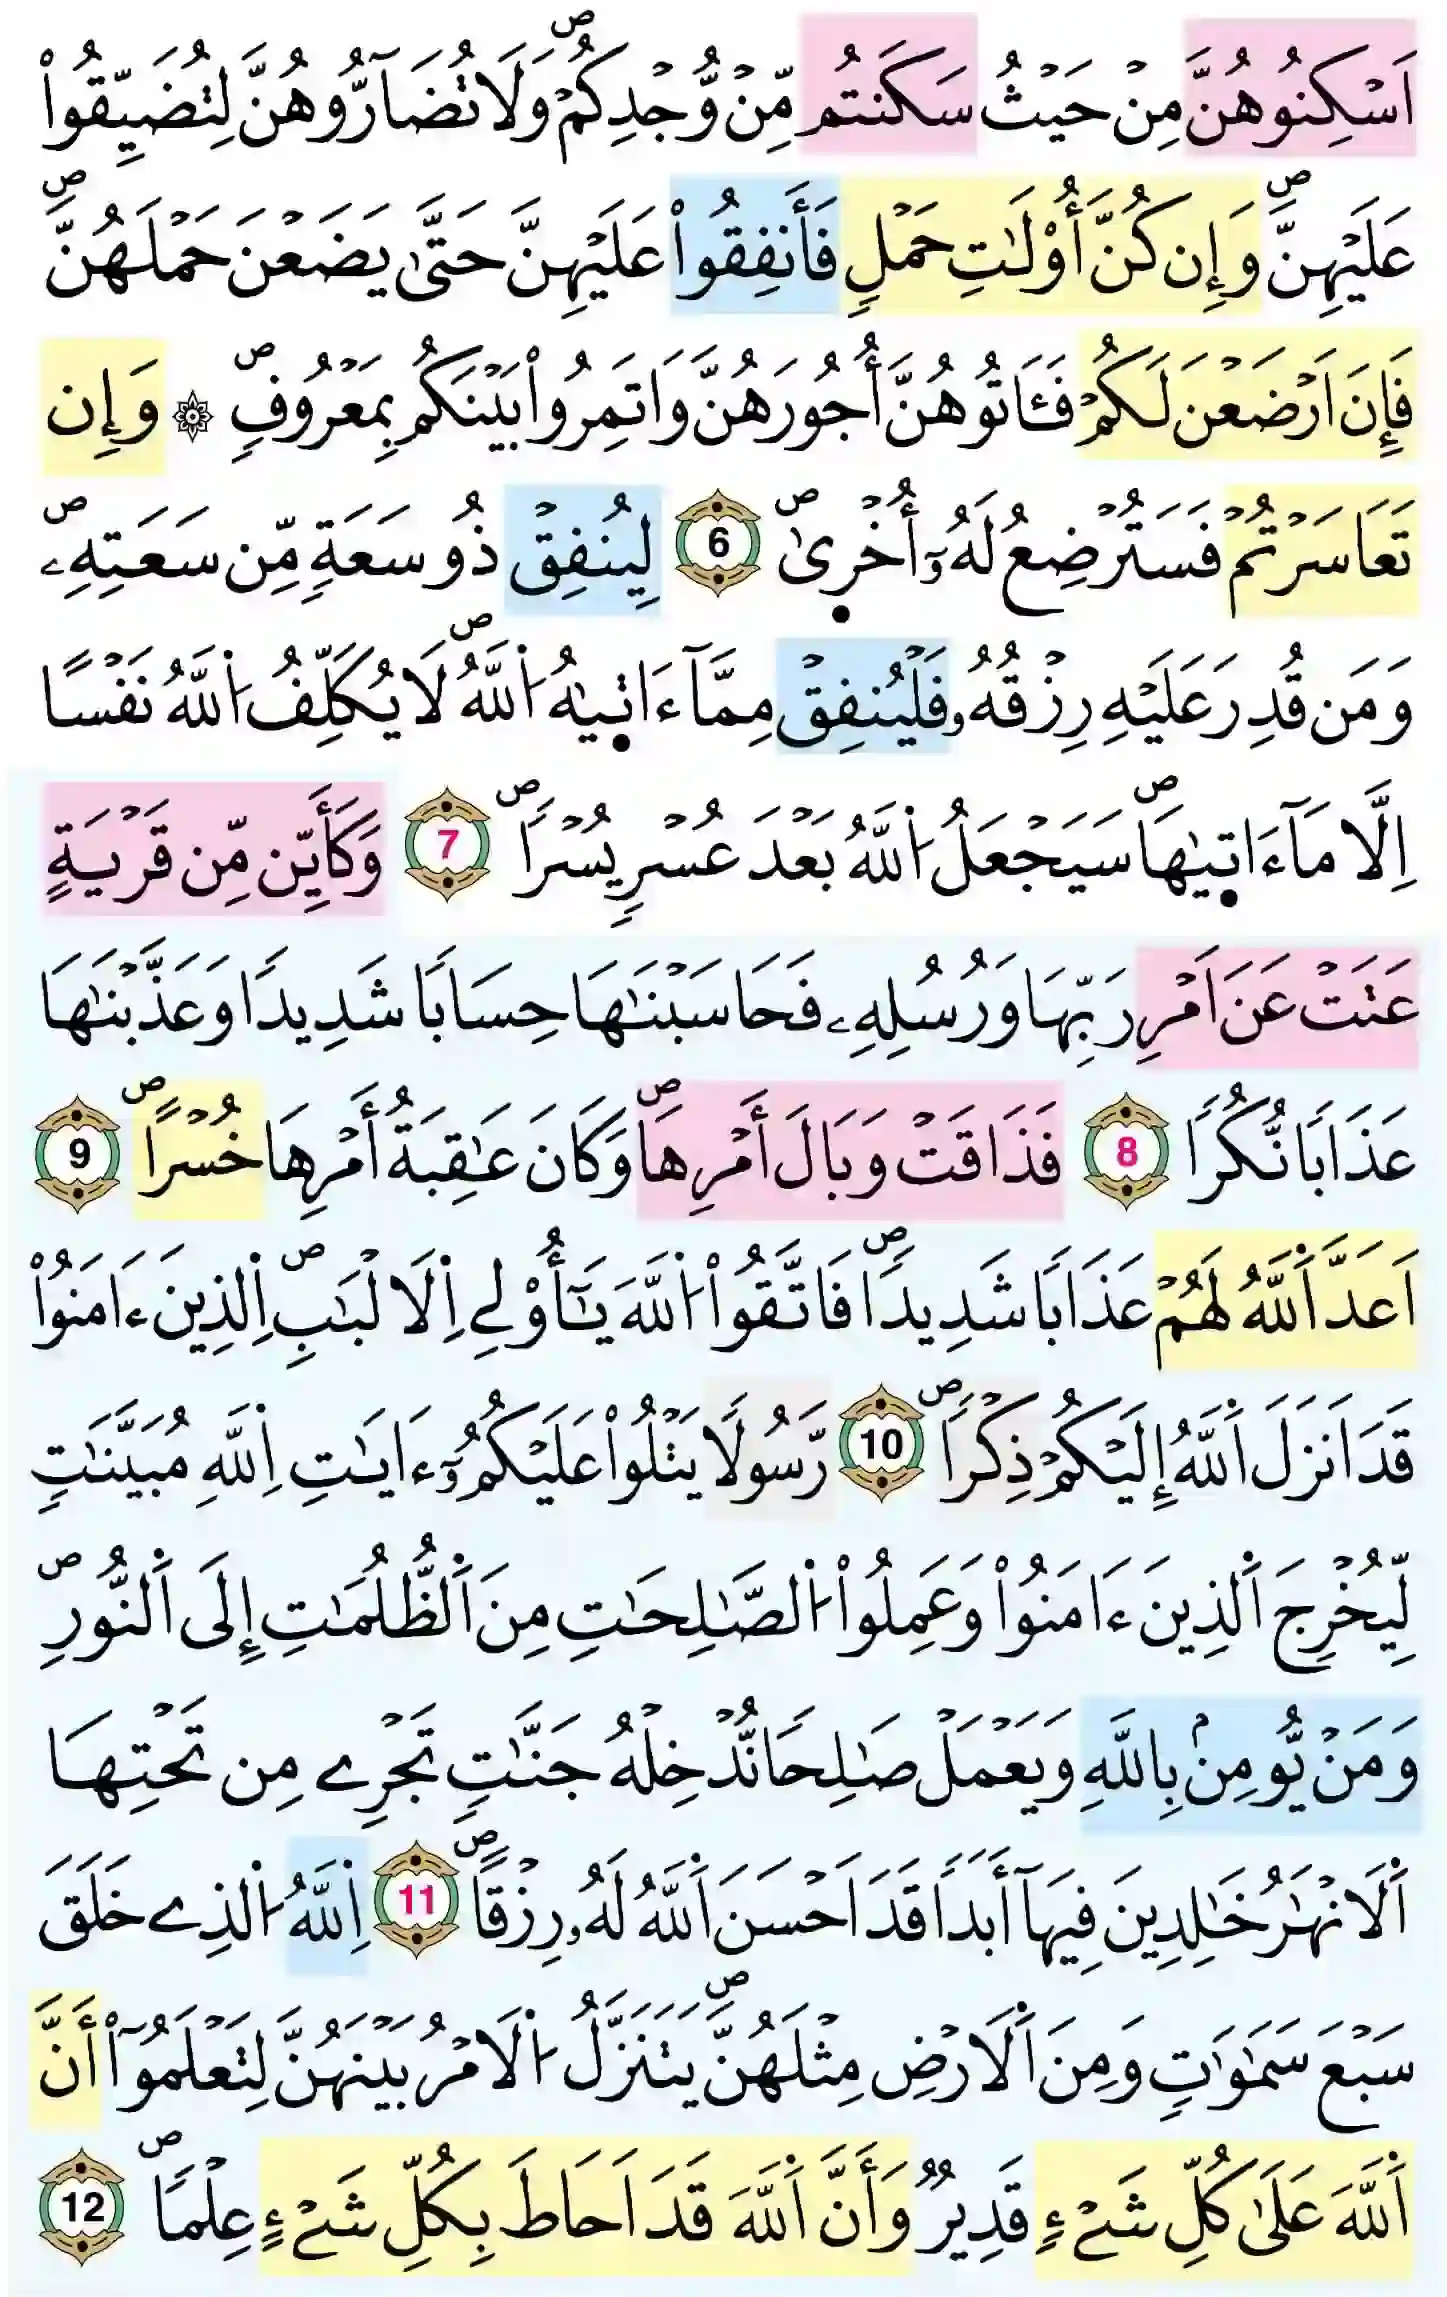 اَسْكِنُوهُنَّ مِنْ حَيْثُ سَكَنتُم مِّنْ وُّجْدِكُمْۖ وَلَا تُضَآرُّوهُنَّ لِتُضَيِّقُواْ
عَلَيْهِنَّۖ وَإِن كُنَّ أُوْلَٰتِ حَمْلٖ فَأَنفِقُواْ عَلَيْهِنَّ حَتَّىٰ يَضَعْنَ حَمْلَهُنَّۖ
فَإِنَ اَرْضَعْنَ لَكُمْ فَـَٔاتُوهُنَّ أُجُورَهُنَّ وَاتَمِرُواْ بَيْنَكُم بِمَعْرُوفٖۖ ۞ وَإِن
تَعَاسَرْتُمْ فَسَتُرْضِعُ لَهُۥٓ أُخْر۪ىٰۖ 6 لِيُنفِقْ ذُو سَعَةٖ مِّن سَعَتِهِۦۖ
وَمَن قُدِرَ عَلَيْهِ رِزْقُهُۥ فَلْيُنفِقْ مِمَّآ ءَات۪يٰهُ اُ۬للَّهُۖ لَا يُكَلِّفُ اُ۬للَّهُ نَفْساً
اِلَّا مَآ ءَات۪يٰهَاۖ سَيَجْعَلُ اُ۬للَّهُ بَعْدَ عُسْرٖ يُسْراٗۖ 7 وَكَأَيِّن مِّن قَرْيَةٍ
عَتَتْ عَنَ اَمْرِ رَبِّهَا وَرُسُلِهِۦ فَحَاسَبْنَٰهَا حِسَاباٗ شَدِيداٗ وَعَذَّبْنَٰهَا
عَذَاباٗ نُّكُراٗ 8 فَذَاقَتْ وَبَالَ أَمْرِهَاۖ وَكَانَ عَٰقِبَةُ أَمْرِهَا خُسْراًۖ 9
اَعَدَّ اَ۬للَّهُ لَهُمْ عَذَاباٗ شَدِيداٗۖ فَاتَّقُواْ اُ۬للَّهَ يَٰٓأُوْلِے اِ۬لَالْبَٰبِۖ اِ۬لذِينَ ءَامَنُواْ
قَدَ اَنزَلَ اَ۬للَّهُ إِلَيْكُمْ ذِكْراٗۖ 10 رَّسُولاٗ يَتْلُواْ عَلَيْكُمُۥٓ ءَايَٰتِ اِ۬للَّهِ مُبَيَّنَٰتٖ
لِّيُخْرِجَ اَ۬لذِينَ ءَامَنُواْ وَعَمِلُواْ اُ۬لصَّٰلِحَٰتِ مِنَ اَ۬لظُّلُمَٰتِ إِلَى اَ۬لنُّورِۖ
وَمَنْ يُّومِنۢ بِاللَّهِ وَيَعْمَلْ صَٰلِحاٗ نُّدْخِلْهُ جَنَّٰتٖ تَجْرِے مِن تَحْتِهَا
اَ۬لَانْهَٰرُ خَٰلِدِينَ فِيهَآ أَبَداٗ قَدَ اَحْسَنَ اَ۬للَّهُ لَهُۥ رِزْقاًۖ 11 اِ۬للَّهُ اُ۬لذِے خَلَقَ
سَبْعَ سَمَٰوَٰتٖ وَمِنَ اَ۬لَارْضِ مِثْلَهُنَّۖ يَتَنَزَّلُ اُ۬لَامْرُ بَيْنَهُنَّ لِتَعْلَمُوٓاْ أَنَّ
اَ۬للَّهَ عَلَىٰ كُلِّ شَےْءٖ قَدِيرٞ وَأَنَّ اَ۬للَّهَ قَدَ اَحَاطَ بِكُلِّ شَےْءٍ عِلْماٗۖ 12